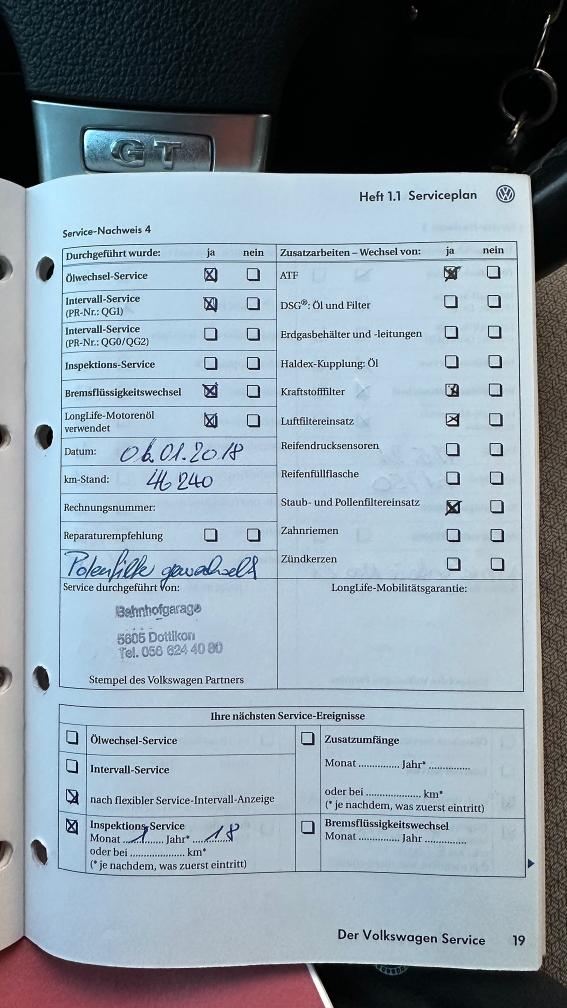 GT
Heft 1.1 Serviceplan
Service-Nachweis 4
Durchgeführt wurde: ja nein
Ölwechsel-Service
Intervall-Service
(PR-Nr.: QG1)
Intervall-Service
(PR-Nr.: QG0/QG2)
Inspektions-Service
Bremsflüssigkeitswechsel
LongLife-Motorenöl
verwendet
Datum: 06.01.2018
km-Stand: 46 240
Rechnungsnummer:
Reparaturempfehlung
Polenfilte gewechselt
Service durchgeführt von:
Bahnhofgarage
5605 Dottikon
Tel. 056 624 40 80
Stempel des Volkswagen Partners
Zusatzarbeiten – Wechsel von: ja nein
ATF
DSG®: Öl und Filter
Erdgasbehälter und -leitungen
Haldex-Kupplung: Öl
Kraftstofffilter
Luftfiltereinsatz
Reifendrucksensoren
Reifenfüllflasche
Staub- und Pollenfiltereinsatz
Zahnriemen
Zündkerzen
LongLife-Mobilitätsgarantie:
Ihre nächsten Service-Ereignisse
Ölwechsel-Service
Intervall-Service
nach flexibler Service-Intervall-Anzeige
Inspektions-Service
Monat 1 Jahr* 18
oder bei .................. km*
(* je nachdem, was zuerst eintritt)
Zusatzumfänge
Monat ............. Jahr* .............
oder bei .................. km*
(* je nachdem, was zuerst eintritt)
Bremsflüssigkeitswechsel
Monat ............. Jahr .............
Der Volkswagen Service 19